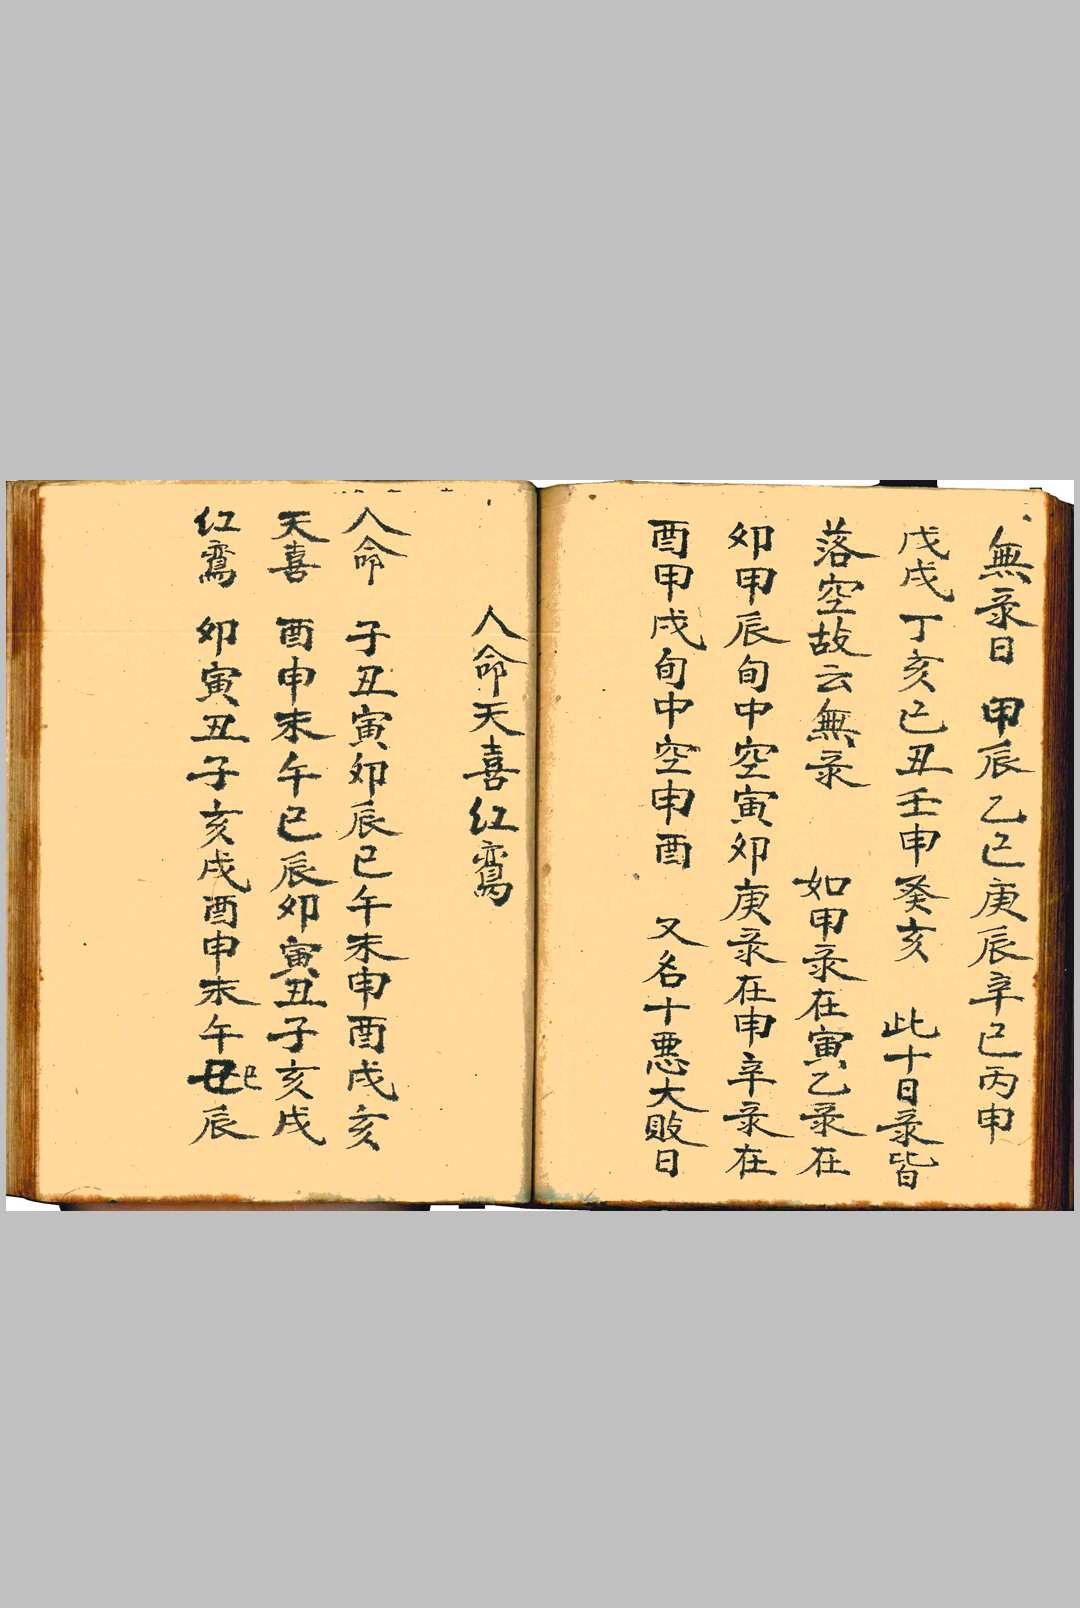 無彔日 甲辰乙巳庚辰辛巳丙申
戊戌丁亥己丑壬申癸亥 此十日彔皆
落空故云無彔 如甲彔在寅乙彔在
卯甲辰旬中空寅卯庚彔在申辛彔在
酉甲戌旬中空申酉 又名十悪大敗日
人命天喜红鸾
人命 子丑寅卯辰巳午未申酉戌亥
天喜 酉申未午巳辰卯寅丑子亥戌
红鸾 卯寅丑子亥戌酉申未午丑巳辰